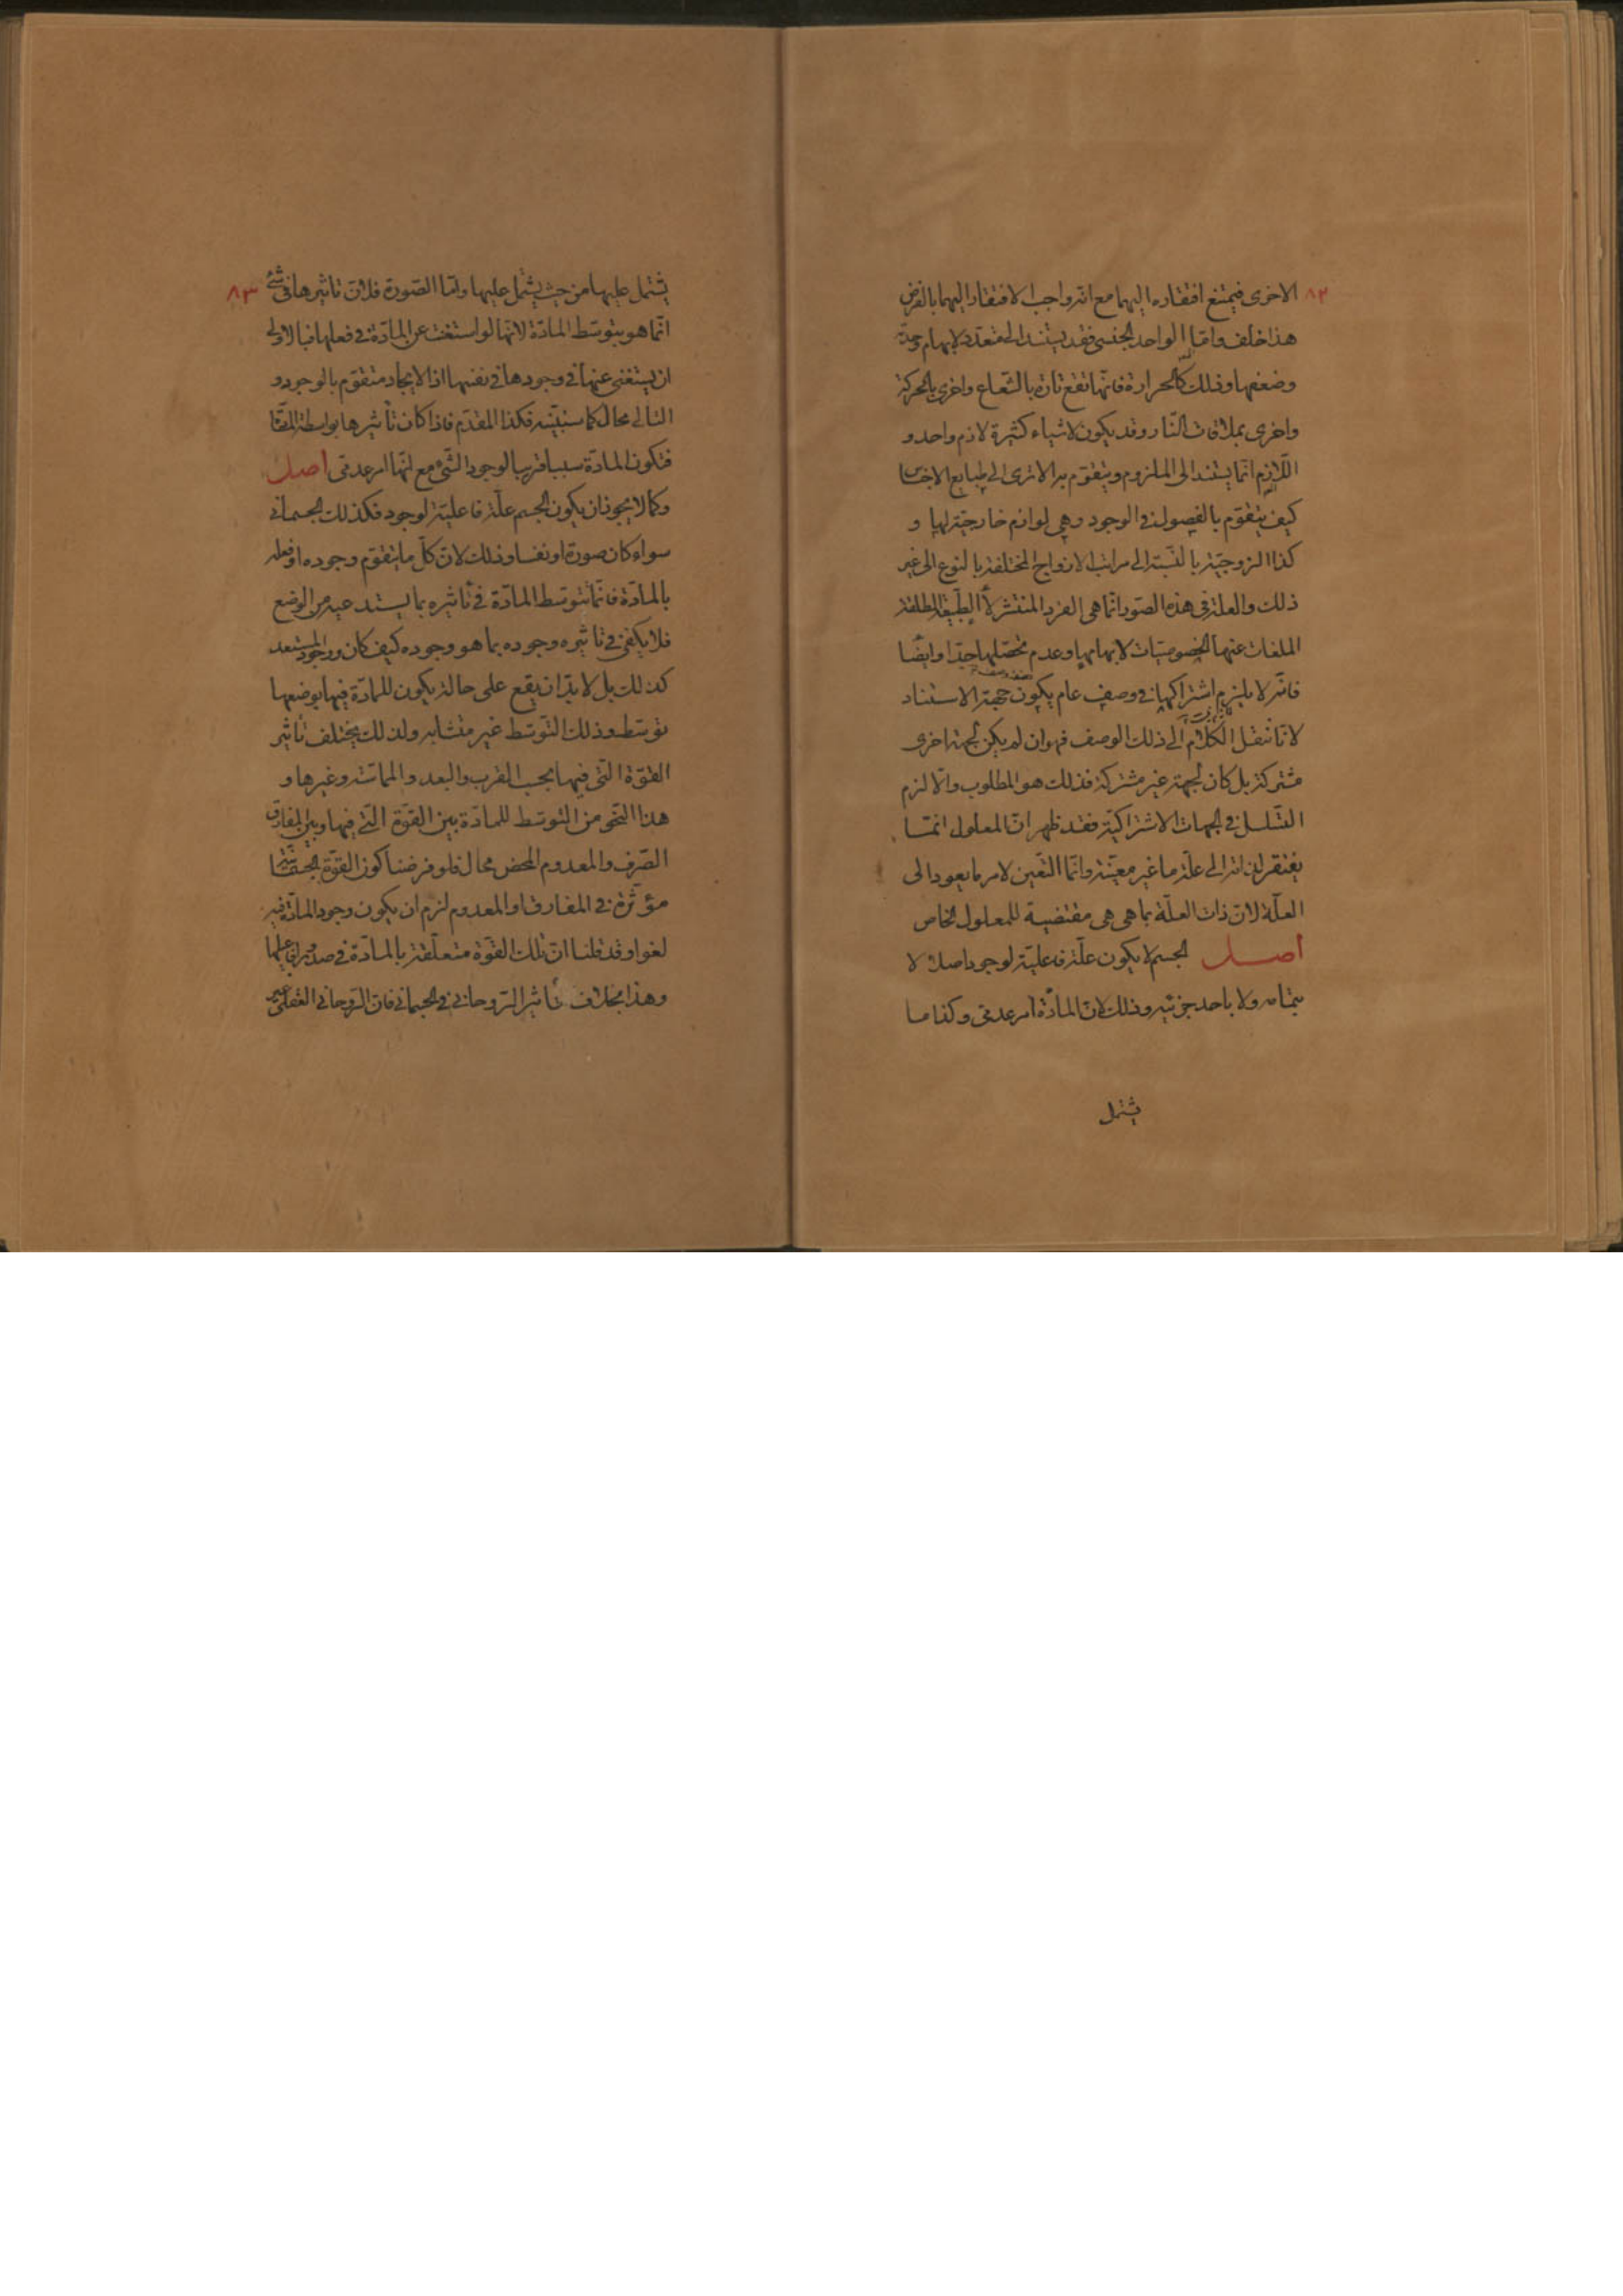 ٨٢
الاخرى فيمتنع افتقاره اليهما مع انه واجب الافتقار اليهما بالفرض
هذا خلف واما الواحد الجنسى فقد يستند الى متعدد لابهام وحدته
وضعفها وذلك كالحرارة فانها تقع تارة بالشعاع واخرى بالحركة
واخرى بملاقات النار وقد يكون لاشياء كثيرة لازم واحد و
اللازم انما يستند الى الملزوم ويتقوم به الا ترى الى طبايع الاجناس
كيف يتقوم بالفصول فى الوجود وهى لوازم خارجية لها و
كذا الزوجية بالنسبة الى مراتب الازواج المختلفة بالنوع الى غير
ذلك والعلة فى هذه الصور انما هى الفرد المنتشر لا الطبيعة المطلقة
الملغات عنها الخصوصيات لابهامها وعدم تحصلها جدا وايضا
فانه لا يلزم اشتراكها فى وصف عام يكون جهة الاستناد
لانا ننقل الكلام الى ذلك الوصف فهو ان لم يكن لجهة اخرى
مشتركة بل كان لجهة غير مشتركة فذلك هو المطلوب والا لزم
التسلسل فى الجهات الاشتراكية فقد ظهر ان المعلول انما
يفتقر لذاته الى علة ما غير معينة وانما التعين لامر ما يعود الى
العلة لان ذات العلة بما هى هى مقتضية للمعلول الخاص
أصل الجسم لا يكون علة فاعلية لوجود اصلا لا
بتمامه ولا باحد جزئيه وذلك لان المادة امر عدمى وكذا ما
يشتمل
٨٣
يشتمل عليها من حيث يشتمل عليها واما الصورة فلان تاثيرها فى شئ
انما هو بتوسط المادة لانها لو استغنت عن المادة فى فعلها فبالاولى
ان يستغنى عنها فى وجودها فى نفسها اذ الايجاد متقوم بالوجود و
التالى محال كما سنبينه فكذا المقدم فاذا كان تأثيرها بواسطة المادة
فتكون المادة سببا قريبا لوجود الشئ مع انها امر عدمى أصل
وكما لا يجوز ان يكون الجسم علة فاعلية لوجود فكذلك الجسمانى
سواء كان صورة او نفسا وذلك لان كل ما يتقوم وجوده او فعله
بالمادة فانما تتوسط المادة فى تأثيره بما يستدعيه من الوضع
فلا يكفى فى تاثيره وجوده بما هو وجوده كيف كان ووجود المستعد
كذلك بل لا بد ان يقع على حالة يكون للمادة فيها بوضعها
توسط وذلك التوسط غير متشابه ولذلك يختلف تأثير
القوة التى فيها بحسب القرب والبعد والمماسة وغيرها و
هذا النحو من التوسط للمادة بين القوة التى فيها وبين المفارق
الصرف والمعدوم المحض محال فلو فرضنا كون القوة الجسمانية
مؤثرة فى المفارق او المعدوم لزم ان يكون وجود المادة فيه
لغوا وقد قلنا ان تلك القوة متعلقة بالمادة فى صدور افاعيلها
وهذا بخلاف تأثير الروحانى فى الجسمانى فان الروحانى العقلى غير